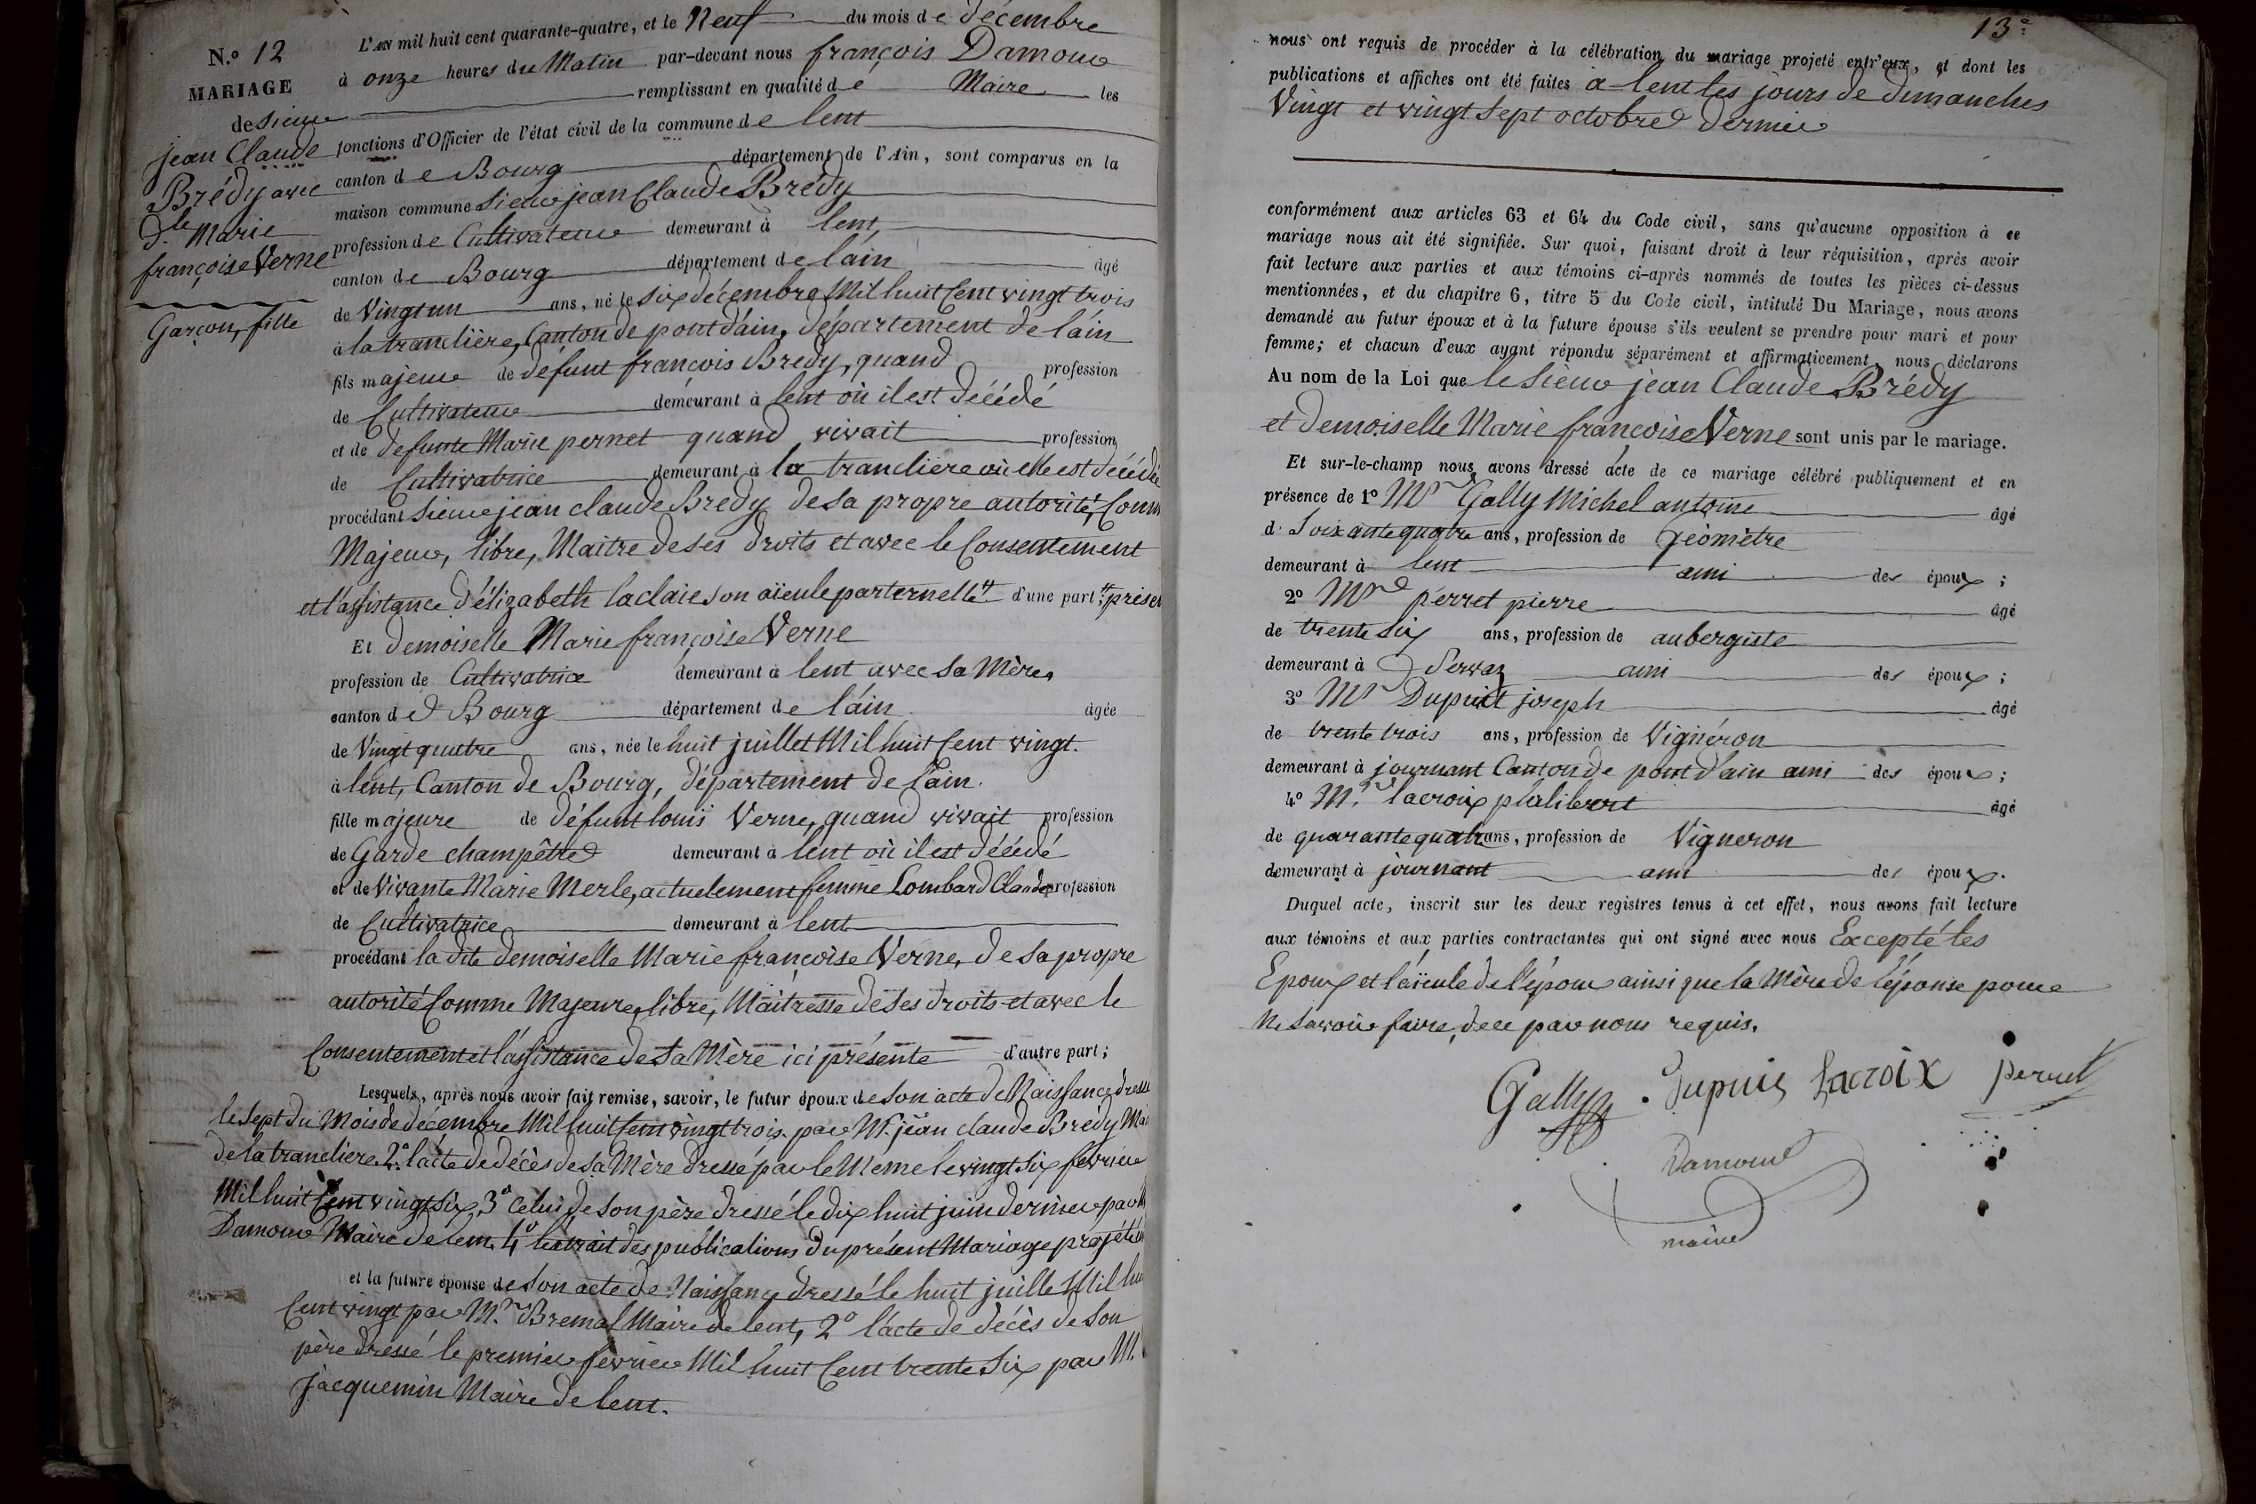 N.o 12
MARIAGE
de sieur
jean Claude
Brédy avec
dlle Marie
françoise Verne
Garçon, fille
L'AN mil huit cent quarante-quatre, et le Neuf du mois de décembre
à onze heures du Matin par-devant nous françois Damour
remplissant en qualité de Maire les
fonctions d'Officier de l'état civil de la commune de lent
canton de Bourg département de l'Ain, sont comparus en la
maison commune Sieur jean Claude Brédy
profession de Cultivateur demeurant à lent,
canton de Bourg département de l'ain âgé
de Vingt un ans, né le six décembre Mil huit Cent vingt trois
à la tranclière, Canton de pont d'ain, département de l'ain
fils majeur de défunt françois Bredy, quand profession
de Cultivateur demeurant à lent où il est décédé
et de defunte Marie pernet quand vivait profession
de Cultivatrice demeurant à la trancliere où elle est décédée
procédant sieur jean claude Bredy de sa propre autorité, Comm
Majeur, libre, Maitre de ses droits et avec le Consentement
et l'assistance d'élizabeth laclaie son aïeule parternelle d'une part; prése
Et demoiselle Marie françoise Verne
profession de Cultivatrice demeurant à lent avec sa Mère,
canton de Bourg département de l'ain âgée
de Vingt quatre ans, née le huit juillet Mil huit Cent vingt.
à lent, Canton de Bourg, département de l'ain.
fille majeure de défunt louis Verne, quand vivait profession
de Garde champêtre demeurant à lent où il est décédé
et de Vivante Marie Merle, actuelement femme Lombard Claude profession
de Cultivatrice demeurant à lent
procédant la dite demoiselle Marie françoise Verne, de sa propre
autorité Comme Majeure, libre, Maitresse de ses droits et avec le
Consentement et l'assistance de sa Mère ici présente d'autre part;
Lesquels, après nous avoir fait remise, savoir, le futur époux de son acte de Naissance dressé
le sept du Mois de décembre Mil huit Cent vingt trois par Mr jean claude Brédy Mai
de la trancliere. 2o l'acte de décès de sa Mère dressé par le Même le vingt six février
Mil huit Cent vingt six, 3o Celui de son père dressé le dix huit juin dernier par M
Damour Maire de lent, 4o l'extrait des publications du présent Mariage projété
et la future épouse de son acte de Naissance dressé le huit juille Mil hui
Cent vingt par Mr Bremal Maire de lent, 2o l'acte de décès de son
père dressé le premier février Mil huit Cent trente six par M.
jacquemin Maire de lent.
13e
nous ont requis de procéder à la célébration du mariage projeté entr'eux, et dont les
publications et affiches ont été faites à lent les jours de dimanches
Vingt et vingt sept octobre dernier
conformément aux articles 63 et 64 du Code civil, sans qu'aucune opposition à ce
mariage nous ait été signifiée. Sur quoi, faisant droit à leur réquisition, après avoir
fait lecture aux parties et aux témoins ci-après nommés de toutes les pièces ci-dessus
mentionnées, et du chapitre 6, titre 5 du Code civil, intitulé Du Mariage, nous avons
demandé au futur époux et à la future épouse s'ils veulent se prendre pour mari et pour
femme; et chacun d'eux ayant répondu séparément et affirmativement, nous déclarons
Au nom de la Loi que le sieur jean Claude Brédy
et demoiselle Marie françoise Verne sont unis par le mariage.
Et sur-le-champ nous avons dressé acte de ce mariage célébré publiquement et en
présence de 1o Mr Gally Michel antoine âgé
d Soixante quatre ans, profession de géomètre
demeurant à lent ami des époux;
2o Mr perret pierre âgé
de trente six ans, profession de aubergiste
demeurant à Servaz ami des époux;
3o Mr Dupuit joseph âgé
de trente trois ans, profession de Vignéron
demeurant à journant Canton de pont d'ain ami des époux;
4o Mr lacroix philibert âgé
de quarante quatre ans, profession de Vigneron
demeurant à journant ami des époux.
Duquel acte, inscrit sur les deux registres tenus à cet effet, nous avons fait lecture
aux témoins et aux parties contractantes qui ont signé avec nous Excepté les
Epoux et l'aïeule de l'époux ainsi que la Mère de l'épouse pour
Ne savoir faire, de ce par nous requis.
Gally Dupuis Lacroix perret
Damour
maire